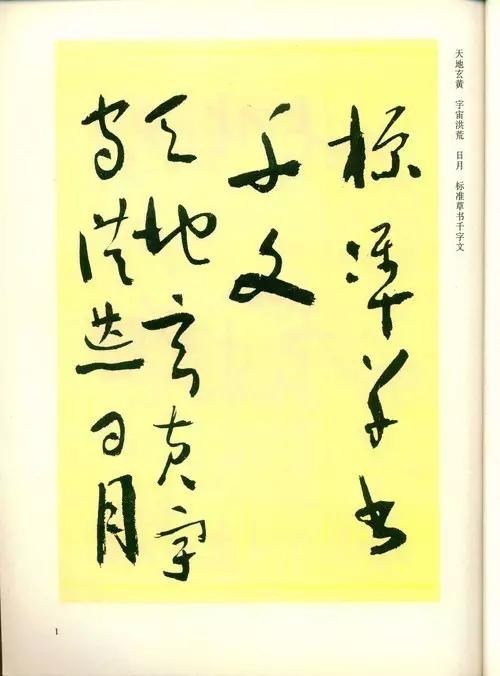 天地玄黄 宇宙洪荒 日月 标准草书千字文
标准草书
千文
天地玄黄宇
宙洪荒日月
1